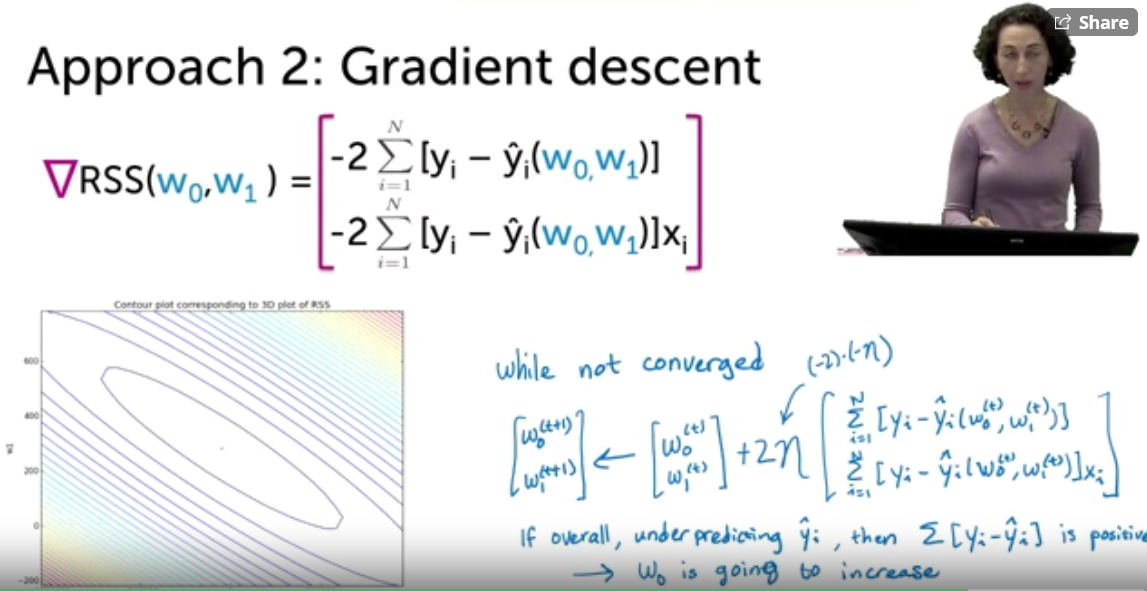 Share
Approach 2: Gradient descent
∇RSS(w₀,w₁) = [ -2 Σᵢ₌₁ᴺ [yᵢ – ŷᵢ(w₀,w₁)]
-2 Σᵢ₌₁ᴺ [yᵢ – ŷᵢ(w₀,w₁)]xᵢ ]
Contour plot corresponding to 3D plot of RSS
600
400
200
0
−200
w1
while not converged (-2)·(-η)
[ w₀⁽ᵗ⁺¹⁾ ← [ w₀⁽ᵗ⁾ +2η [ Σᵢ₌₁ᴺ [yᵢ-ŷᵢ(w₀⁽ᵗ⁾,w₁⁽ᵗ⁾)]
w₁⁽ᵗ⁺¹⁾ ] w₁⁽ᵗ⁾ ] Σᵢ₌₁ᴺ [yᵢ-ŷᵢ(w₀⁽ᵗ⁾,w₁⁽ᵗ⁾)]xᵢ ]
If overall, under predicting ŷᵢ, then Σ[yᵢ-ŷᵢ] is positive
→ w₀ is going to increase